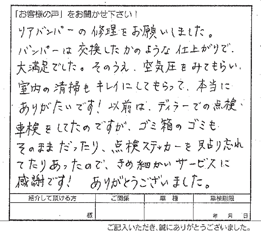 「お客様の声」をお聞かせ下さい!
リアバンパーの修理をお願いしました。
バンパーは交換したかのような仕上がりで、
大満足でした。そのうえ、空気圧をみてもらい、
室内の清掃もキレイにしてもらって、本当に
ありがたいです!以前は、ディラーでの点検・
車検をしてたのですが、ゴミ箱のゴミも
そのままだったり、点検ステッカーを貼り忘れ
てたりあったので、きめ細かいサービスに
感謝です! ありがとうございました。
紹介して頂ける方 ご関係 車種 車検期限
様 年 月 日
ご記入いただき、誠にありがとうございました。